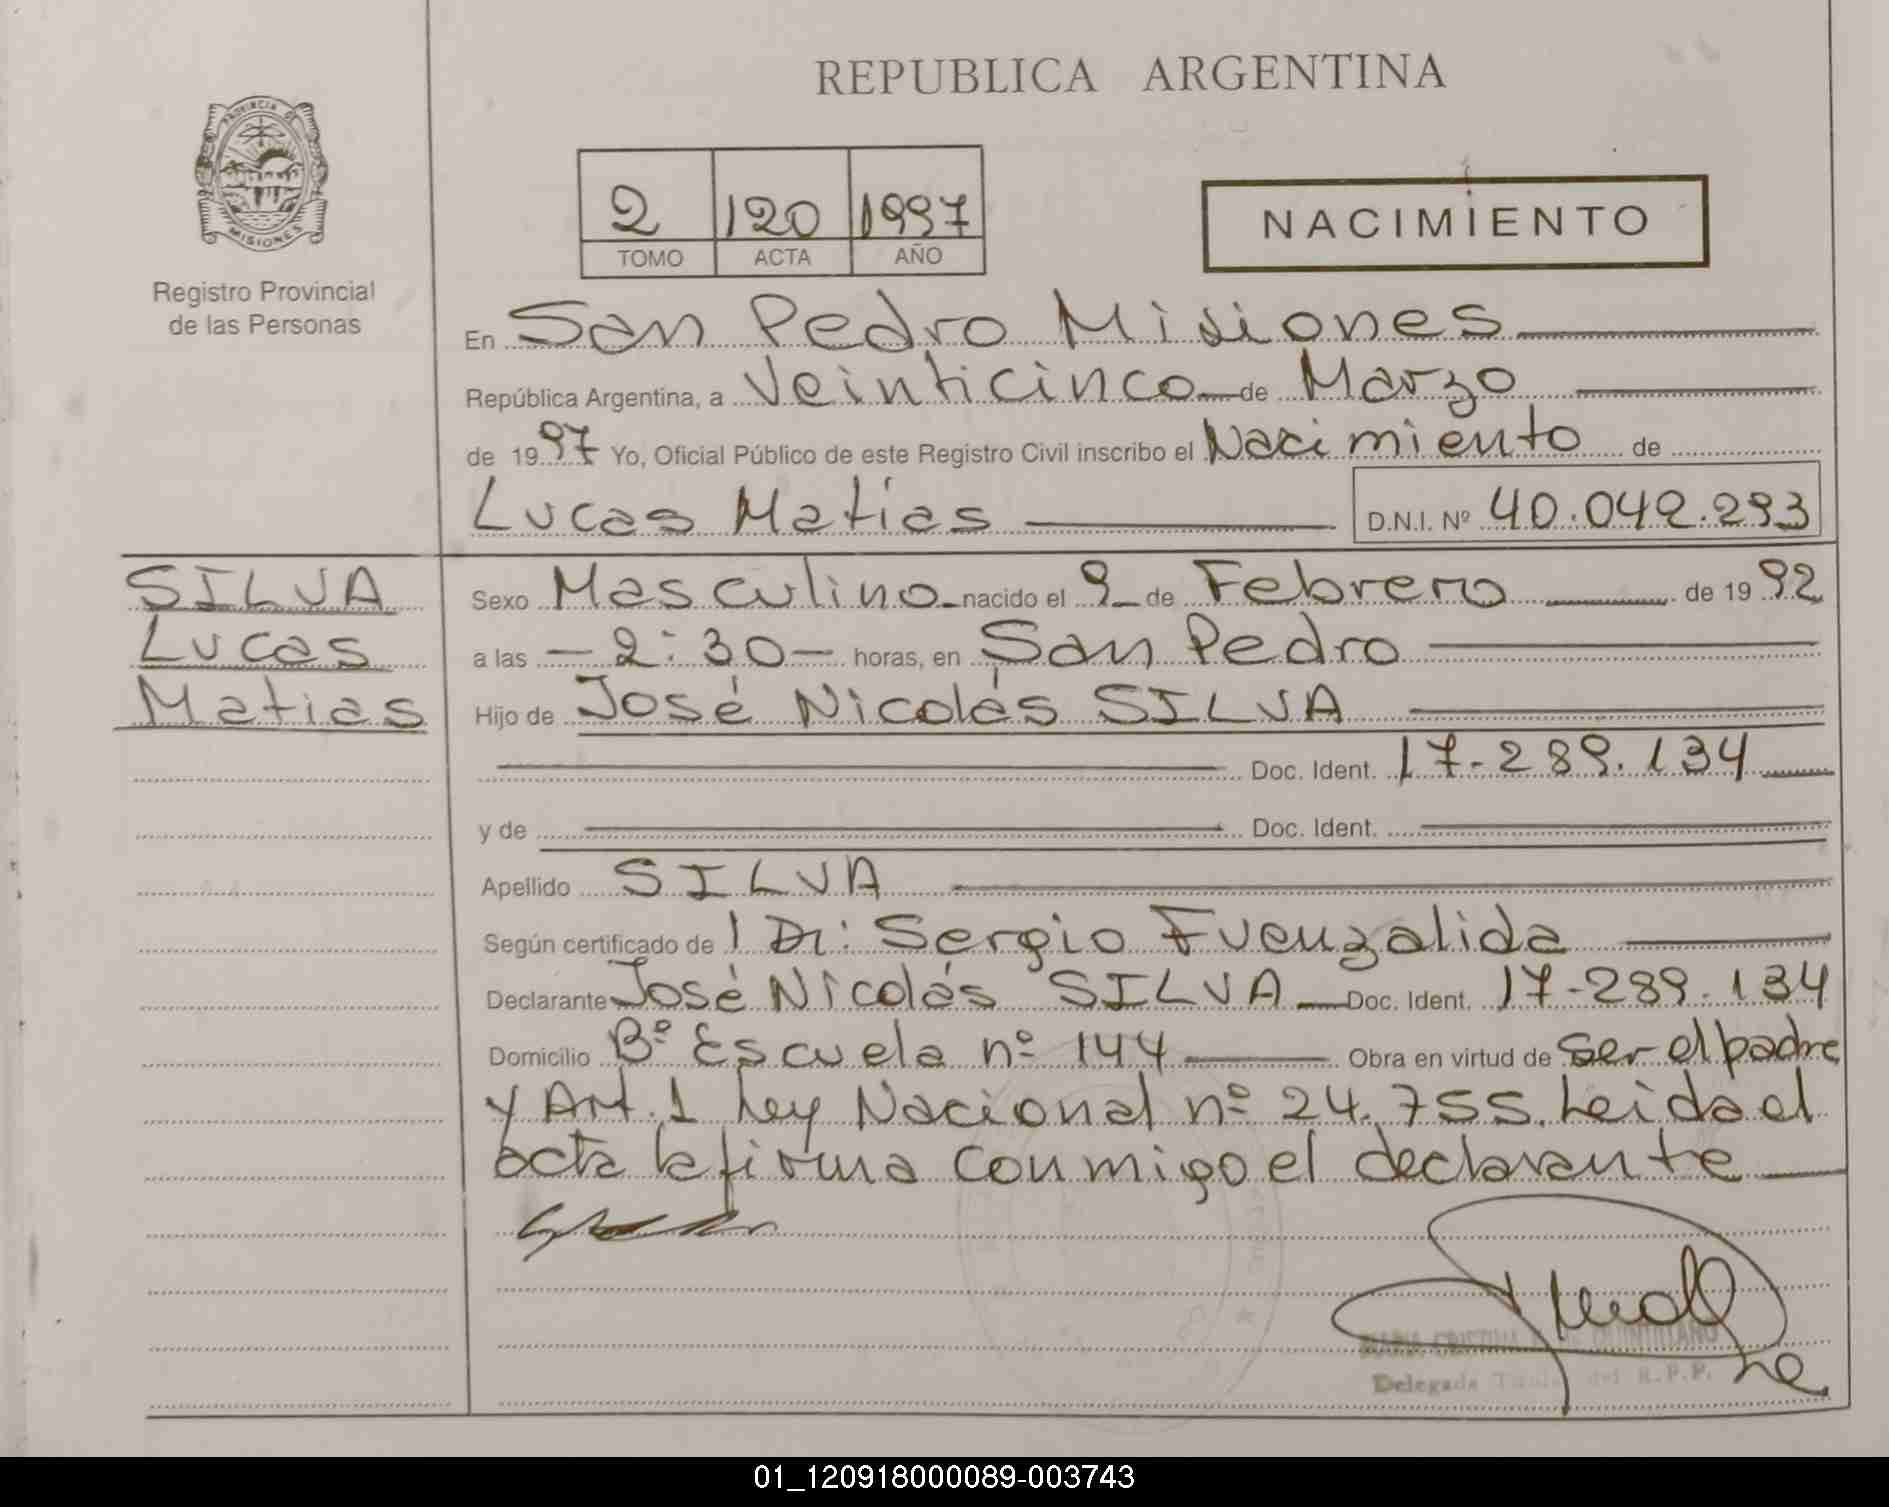 REPUBLICA ARGENTINA
PROVINCIA DE
MISIONES
Registro Provincial
de las Personas
2 120 1997
TOMO ACTA AÑO
NACIMIENTO
En San Pedro Misiones
República Argentina, a Veinticinco de Marzo
de 1997 Yo, Oficial Público de este Registro Civil inscribo el Nacimiento de
Lucas Matias D.N.I. Nº 40.042.293
SILVA
Lucas
Matias
Sexo Masculino nacido el 9 de Febrero de 1992
a las - 2:30 - horas, en San Pedro
Hijo de José Nicolás SILVA
Doc. Ident. 17-289.134
y de Doc. Ident.
Apellido SILVA
Según certificado de l Dr: Sergio Fuenzalida
Declarante José Nicolás SILVA Doc. Ident. 17-289.134
Domicilio Bº Escuela nº 144 Obra en virtud de ser el padre
y Art. 1 Ley Nacional nº 24.755. Leida el
acta la firma conmigo el declarante
MARIA CRISTINA QUINTILIANO
Delegada Titular del R.P.P.
01_120918000089-003743